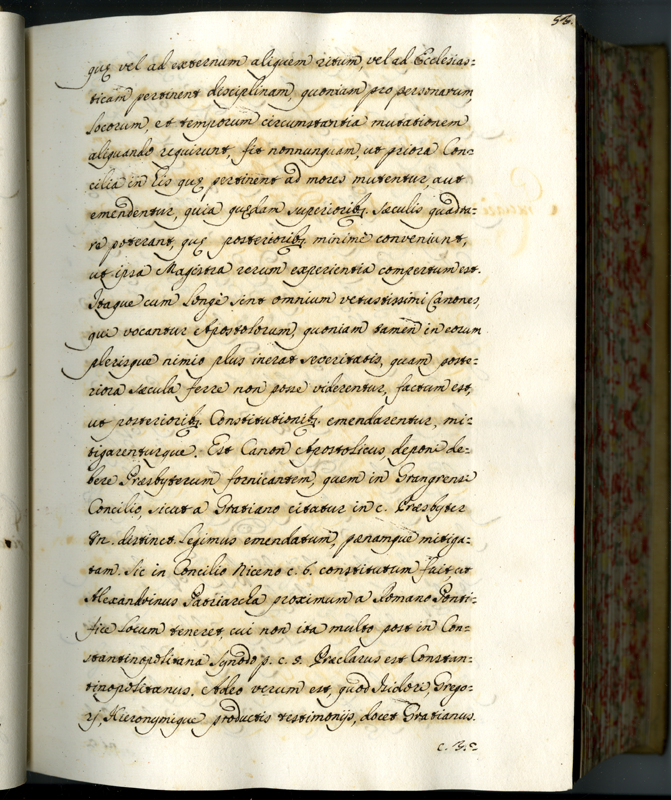 que vel ad externum aliquem ritum, vel ad Ecclesias=
ticam pertinent disciplinam, quoniam pro personarum,
locorum, et temporum circumstantia mutationem
aliquando requirunt, fit nonnunquam, ut priora Con=
cilia in iis que pertinent ad mores mutentur, aut
emendentur, quia quedam superiorib. sæculis quadra=
re poterant, que posteriorib. minime conveniunt,
ut ipsa Magistra rerum experientia compertum est.
Itaque cum longe sint omnium vetustissimi Canones,
que vocantur Apostolorum, quoniam tamen in eorum
plerisque nimio plus inerat severitatis, quam poste=
riora sæcula ferre non posse viderentur, factum est,
ut posteriorib. Constitutionib. emendarentur, mi=
tigarenturque. Est Canon Apostolicus, deponi de=
bere Præsbyterum fornicantem, quem in Grangrensi
Concilio, sicut a Gratiano citatur in c. Præsbyter
distinct. legimus emendatum, pænamque mitiga=
tam. Sic in Concilio Niceno c. 6. constitutum fait ut
Alexandrinus Patriarcha proximum a Romano Ponti=
fice locum teneret, cui non ita multo post in Con=
stantinopolitana Synodo p. c. 5. Præclarus est Constan=
tinopolitanus. Adeo verum est, quod Isidori, Grego=
rij, Hieronymique productis testimonijs, docet Gratianus.